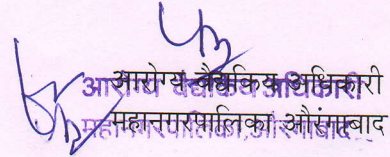 आरोग्य वैद्यकिय अधिकारी
महानगरपालिका औरंगाबाद
आरोग्य वैद्यकीय अधिकारी
महानगरपालिका, औरंगाबाद